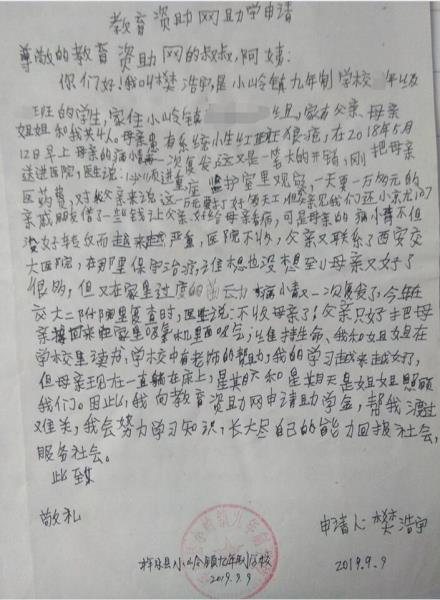 教育资助网助学申请
尊敬的教育资助网的叔叔,阿姨:
你们好!我叫樊浩宇,是小岭镇九年制学校 年级
班的学生,家住小岭镇 组,家有父亲 母亲
姐姐和我共4人。母亲患有系统小生红斑狼疮,在2018年5月
12日早上母亲的病情 一次复发,这又是一笔大的开销,刚把母亲
送进医院,医生说: 重症监护室里观察,一天要一万多元的
医药费,对我父亲来说这一万元要打好 工,但父亲见我们还小,求 门
亲戚朋友借了一些钱,让父亲 好给母亲看病,可是母亲的病情不但
没好转反而越来越严重,医院不收,父亲又联系了西安交
大医院,在那里保守治疗,谁想也没想到母亲又好了
很多,但又在家里过度的 劳动 病情又一次复发了,今年在
交大二附院里复查时,医生说:不收母亲了!父亲只好把母
亲接回来在家里吸氧机里吸气,维持生命、我和姐姐在
学校里读书,学校中有老师的帮助,我的学习越来越好了,
但母亲现在一直躺在床上,星期六和星期天是姐姐照顾
我们。因此,我向教育资助网申请助学金,帮我渡过
难关,我会努力学习知识,长大尽自己的能力回报社会,
服务社会。
此致
敬礼
申请人:樊浩宇
柞水县小岭镇九年制学校
2019.9.9
2019.9.9